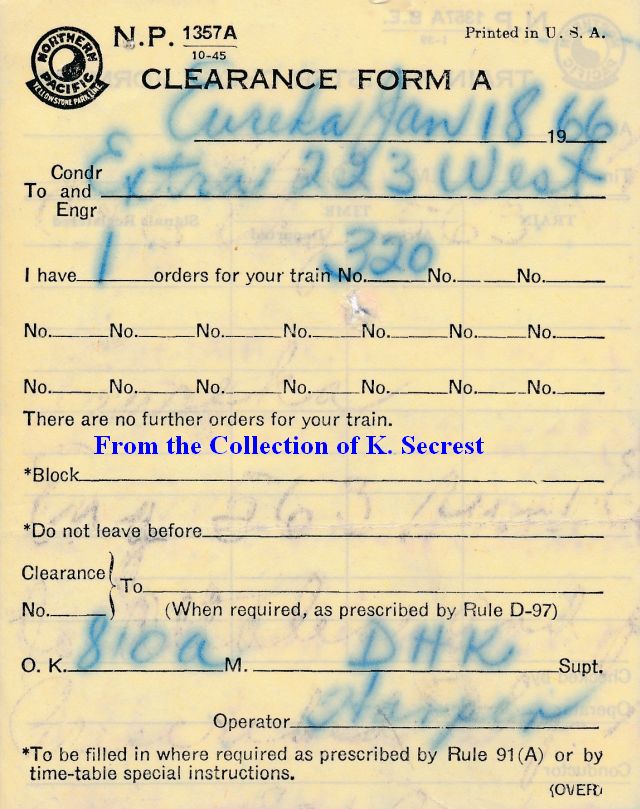 NORTHERN PACIFIC
YELLOWSTONE PARK LINE
N.P. 1357A
10-45
Printed in U. S. A.
CLEARANCE FORM A
Eureka Jan 18 1966
To Condr and Engr Extra 223 West
I have 1 orders for your train No. 320 No. No.
No. No. No. No. No. No. No.
No. No. No. No. No. No. No.
There are no further orders for your train.
From the Collection of K. Secrest
*Block
*Do not leave before
Clearance No. } To
(When required, as prescribed by Rule D-97)
O. K. 810 a M. DHK Supt.
Operator Harper
*To be filled in where required as prescribed by Rule 91(A) or by
time-table special instructions.
(OVER)